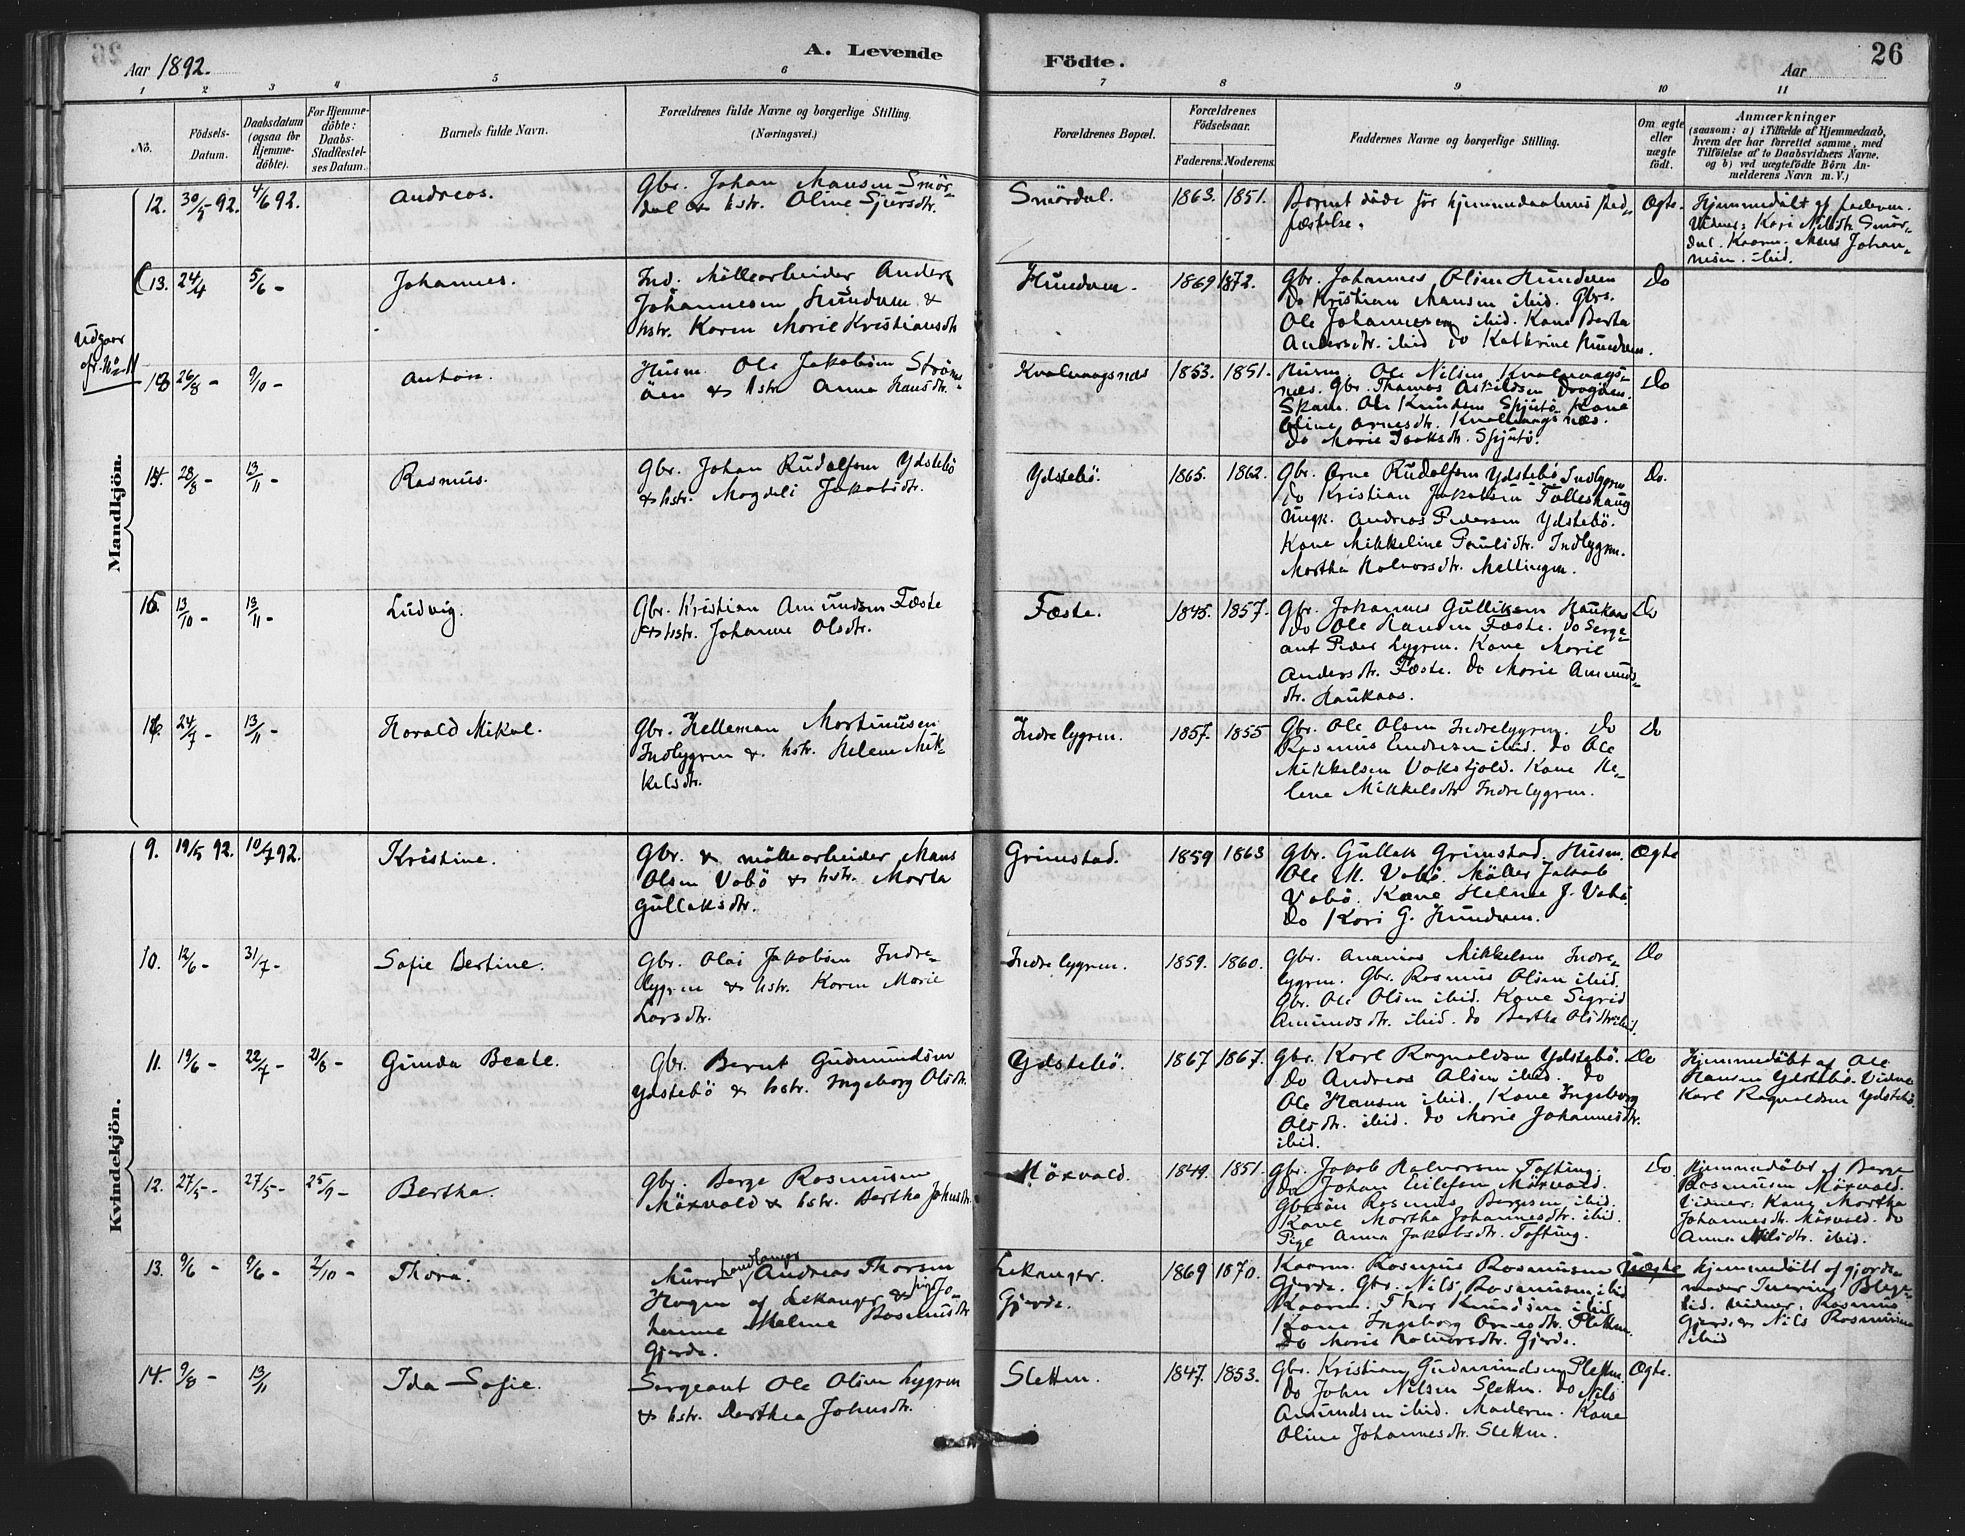 Aar 1892.
A. Levende
Födte.
26
Aar
1 2 3 4 5 6 7 8 9 10 11
No.
Födsels-
Datum.
Daabsdatum
(ogsaa for
Hjemme-
döbte).
For Hjemme-
döbte:
Daabs-
Stadfæstel-
ses Datum.
Barnets fulde Navn.
Forældrenes fulde Navne og borgerlige Stilling.
(Næringsvei.)
Forældrenes Bopæl.
Forældrenes
Födselsaar.
Faderens. Moderens.
Faddernes Navne og borgerlige Stilling.
Om ægte
eller
uægte
födt.
Anmærkninger
(saasom: a) i Tilfælde af Hjemmedaab,
hvem der har forrettet samme, med
Tilföielse af to Daabsvidners Navne,
og b) ved uægtefödte Börn An-
melderens Navn m. V.)
Mandkjön.
12. 30/5 92. 4/6 92.
Andreas.
Gbr. Johan Mansen Smör-
dal & hstr. Oline Sjursdtr.
Smördal.
1863. 1851.
Barnet döde för hjemmedaabens stad-
fæstelse.
Ægte.
Hjemmedöbt af faderen.
Vidner: Kari Nilsdtr Smör-
dal. Kaarm. Mons Johan-
nesen. ibid.
13. 24/4 5/6 -
Johannes.
Ind. Möllearbeider Anders
Johannesen Hundven &
hstr. Karen Marie Kristiansdtr
Hundven.
1869 1872.
Gbr. Johannes Olsen Hundven
Do Kristian Mansen ibid. Gbrs.
Ole Johannesen ibid. Kone Berta
Andersdtr. ibid Do Kathrine Hundven.
Do
Udgaar
cfr. No 11
13 26/8 - 9/10 -
Anton.
Husm. Ole Jakobsen Ström-
öen & hstr. Anna Hansdtr.
Kvalvaagsnæs
1853. 1851.
Husm. Ole Nilsen Kvalvaags-
næs. Gbr. Thomas Askildsen
Ole Knudsen Spjutö. Kone
Oline Arnesdtr. Kvalvaagsnæs.
Do Marie Isaksdtr. Spjutö.
Do
14. 28/8 - 13/11 -
Rasmus.
Gbr. Johan Rudolfsen Ydstebö
& hstr. Magdeli Jakobsdtr.
Ydstebö.
1865. 1862.
Gbr. Arne Rudolfsen Ydstebö Indlygren
Do Kristian Jakobsen
Ungk. Andreas Pedersen Ydstebö.
Kone Mikkeline Paulsdtr. Indlygren.
Martha Halvorsdtr. Mellingen.
Do.
15. 13/10 - 13/11 -
Ludvig.
Gbr. Kristian Amundsen Fæste
& hstr. Johanne Olsdtr.
Fæste.
1845. 1857.
Gbr. Johannes Gulliksen Haukaas
Do Ole Hansen Fæste. Do Serge-
ant Peder Lygren. Kone Marie
Andersdtr. Fæste. Do Marie Amunds-
dtr. Haukaas.
Do
16 24/7 - 13/11 -
Harald Mikal.
Gbr. Helleman Martinusen
Indlygren & hstr. Helene Mik-
kelsdtr.
Indre lygren.
1857. 1855
Gbr. Ole Olsen Indrelygren. Do
Rasmus Endresen ibid. Do Ole
Mikkelsen Vaksfjold. Kone He-
lene Mikkelsdtr Indrelygren.
Do
Kvindekjön.
9. 19/5 92. 10/7 92.
Kristine.
Gbr. & möllearbeider Mans
Olsen Vabö & hstr. Marta
Gullaksdtr.
Grimstad.
1859 1863
Gbr. Gullak Grimstad. Husm.
Ole M. Vabö. Möller Jakob
Vabö. Kone Helene J. Vabö.
Do Kari G. Hundven.
Ægte
10. 12/6 - 31/7 -
Sofie Bertine.
Gbr. Olai Jakobsen Indre-
lygren & hstr. Karen Marie
Larsdtr.
Indre lygren.
1859. 1860.
Gbr. Ananias Mikkelsen Indre-
lygren. Gbr. Rasmus Olsen ibid.
Gbr. Ole Olsen ibid. Kone Sigrid
Amundsdtr. ibid. Do Bertha Olsdtr ibid.
Do
11. 19/6 - 22/7 - 21/8 -
Gunda Beate.
Gbr. Bernt Gudmundsen
Ydstebö & hstr. Ingeborg Olsdtr.
Ydstebö.
1867 1867.
Gbr. Karl Ragnvaldsen Ydstebö.
Do Andreas Olsen ibid. Do
Ole Hansen ibid. Kone Ingeborg
Olsdtr. ibid. Do Marie Johannesdtr.
ibid.
Do
Hjemmedöbt af Ole
Hansen Ydstebö. Vidne
Karl Ragnvaldsen Ydstebö.
12. 27/5 - 27/5 - 25/9 -
Bertha.
Gbr. Berge Rasmusen
Möxvald & hstr. Bertha Johnsdtr.
Möxvald.
1849. 1851.
Gbr. Jakob Halvorsen Tofting.
Do Johan Eilefsen Möxvald.
Gbrsön Rasmus Bergesen ibid.
Kone Martha Johannesdtr. ibid.
Pige Anna Jakobsdtr. Tofting.
Do
Hjemmedöbt af Berge
Rasmusen Möxvald.
Vidner: Kone Martha
Johannesdtr. Möxvald. Do
Anna Nilsdtr. ibid.
13. 9/6 - 9/6 - 2/10 -
Thora.
Murer handlanger Andreas Thorsen
Hagen af Lekanger & pige Jo-
hanne Malene Rasmusdtr
Gjerde.
Lekanger.
Gjerde.
1869 1870.
Kaarm. Rasmus Rasmusen
Gjerde. Gbr. Nils Rasmusen ibid
Kaarm. Thor Knudsen ibid
Kone Ingeborg Arnesdtr. Sletten.
Do Marie Halvorsdtr. Gjerde.
Uægte
Hjemmedöbt af gjorde-
moder
lid. Vidner: Rasmus
Gjerde & Nils Rasmusen
ibid
14. 9/8 - 13/11
Ida Sofie.
Sergeant Ole Olsen Lygren
& hstr. Dorthea Johnsdtr.
Sletten.
1847. 1853.
Gbr. Kristian Gudmundsen Sletten.
Do John Nilsen Sletten. Do Nils
Amundsen ibid. Moderen. Kone
Oline Johannesdtr. Sletten.
Ægte.